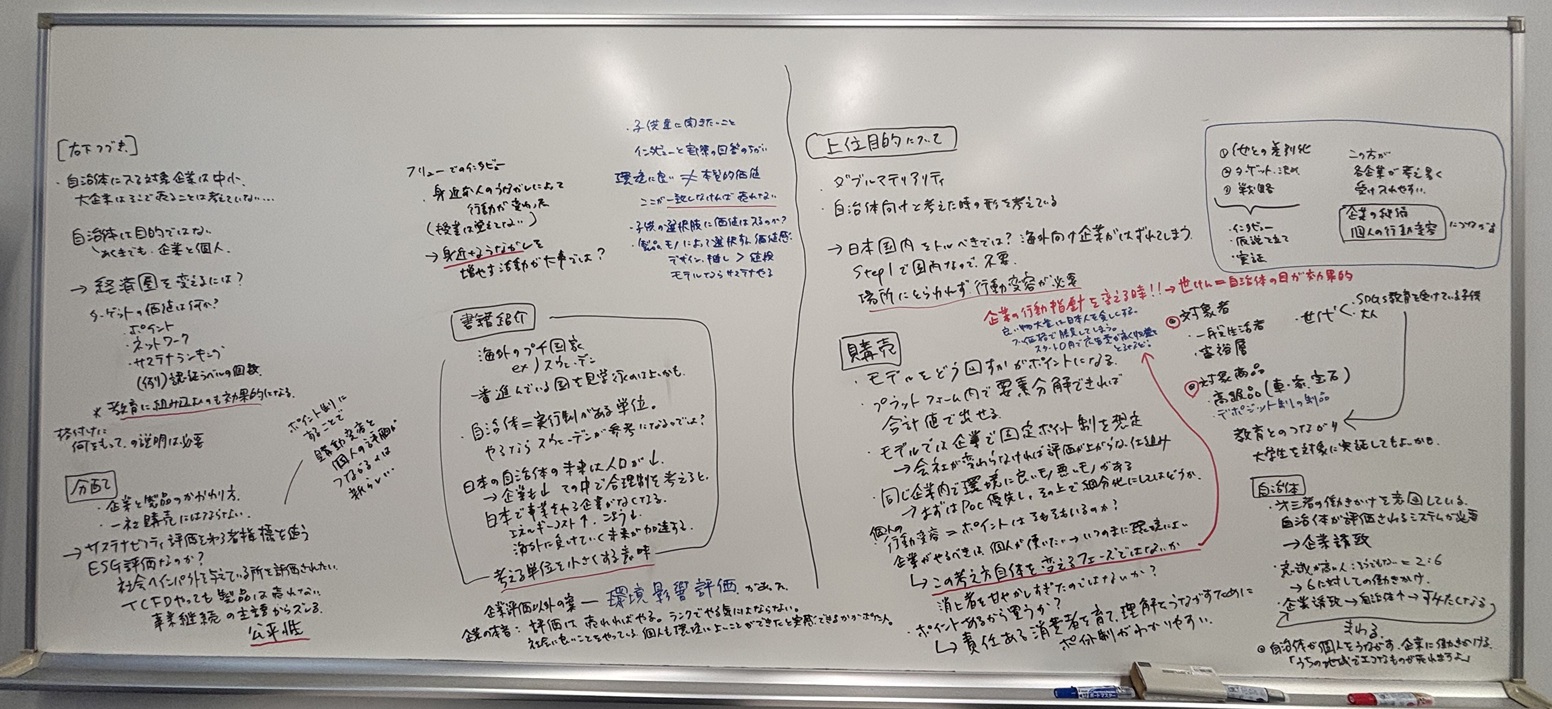 [右下つづき]
・自治体に入る対象企業は中小、
大企業はそこで売ることは考えていない…
自治体は目的ではない
あくまでも、企業と個人。
→ 経済圏を変えるには?
ターゲットの価値は何か?
・ポイント
・ネットワーク
・サステナランキング
(例)認証ラベルの回数
* 教育に組み込むのも効果的になる。
格付けに
何をもって、の説明は必要
ポイント制に
することで
購動変容と
個人の評価が
つながるのは
新らしい
分配
・企業と製品のかかわり方。
・一社購売にはならない。
→サステナビリティ評価を新指標を使う
ESG評価なのか?
社会へインパクトを与えている所を評価されたい。
TCFDやっても製品は売れない
事業継続の主語からズレる。
公平性
フリューでのインタビュー
・身近な人のうながしによって
行動が変わった
(授業は覚えてない)
→身近なうながしを
増やす活動が大事では?
・子供達に聞きたいこと
インタビューと実際の回答のちがい
環境に良い ≠ 本質的価値
ここが一致しなければ売れない
・子供の選択肢に価値は入るのか?
・製品、モノによって選択する価値感
デザイン、推し > 値段
モデルでならサステナやる
書籍紹介
海外のプチ国家
ex)スウェーデン
一番進んでいる国を見学行くのは良いかも。
・自治体=実行制がある単位。
やるならスウェーデンが参考になるのでは?
日本の自治体の未来は人口が↓
→企業も↓ その中で合理制を考えると、
日本で事業をやる企業がなくなる。
エネルギーコスト↑、こようも
海外に負けていく未来が加速する。
考える単位を小さくする意味
企業評価以外の案 — 環境影響評価 があった
企業の本音: 評価は売れればやる。ランクでやる気にはならない。
上位目的について
・ダブルマテリアリティ
・自治体向けと考えた時の形を考えている
→日本国内をトルべきでは? 海外向け企業がはずれてしまう。
Step1で国内なので、不要
場所にとらわれず行動変容が必要
企業の行動指針を変える時!!→せけん=自治体の目が効果的
購売
・モデルをどう回すかがポイントになる。
・プラットフォーム内で要素分解できれば
合計値で出せる。
・モデルでは企業で固定ポイント制を想定
→会社が変わらなければ評価が上がらない仕組み
・同じ企業内で環境に良いモノ悪いモノがある
→まずはPoC優先し、その上で細分化にしてはどうか。
個人の
行動変容 = ポイントはそもそもいるのか?
企業がやるべきは、個人が使いたい→いつのまに環境によい
↳この考え方自体を変えるフェーズではないか
消費者を甘やかしすぎたのではないか?
・ポイントあるから買うか?
↳責任ある消費者を育て、理解をうながすために
ポイント制がわかりやすい。
①他との差別化
②ターゲット、決め
③戦略
・インタビュー
・仮説立て
・実証
この方が
各企業が考え易く
受け入れやすい。
企業の継続
個人の行動変容 につながる
◎対象者
・一般生活者
・富裕層
せだい
・SDGs教育を受けている子供
・大人
◎対象商品
高級品(車・家・宝石)
・デポジット制の製品
教育とのつながり
大学生を対象に実証してもよいかも。
自治体
・第三者の働きかけを意図している。
自治体が評価されるシステムが必要
→企業誘致
・意識が高い人:どうでもいい = 2:6
→6に対しての働きかけ。
・企業誘致→自治体↑→すみたくなる
まわる。
◎自治体が個人をうながす、企業に働きかける。
「うちの地域でエコなものが売れますよ」